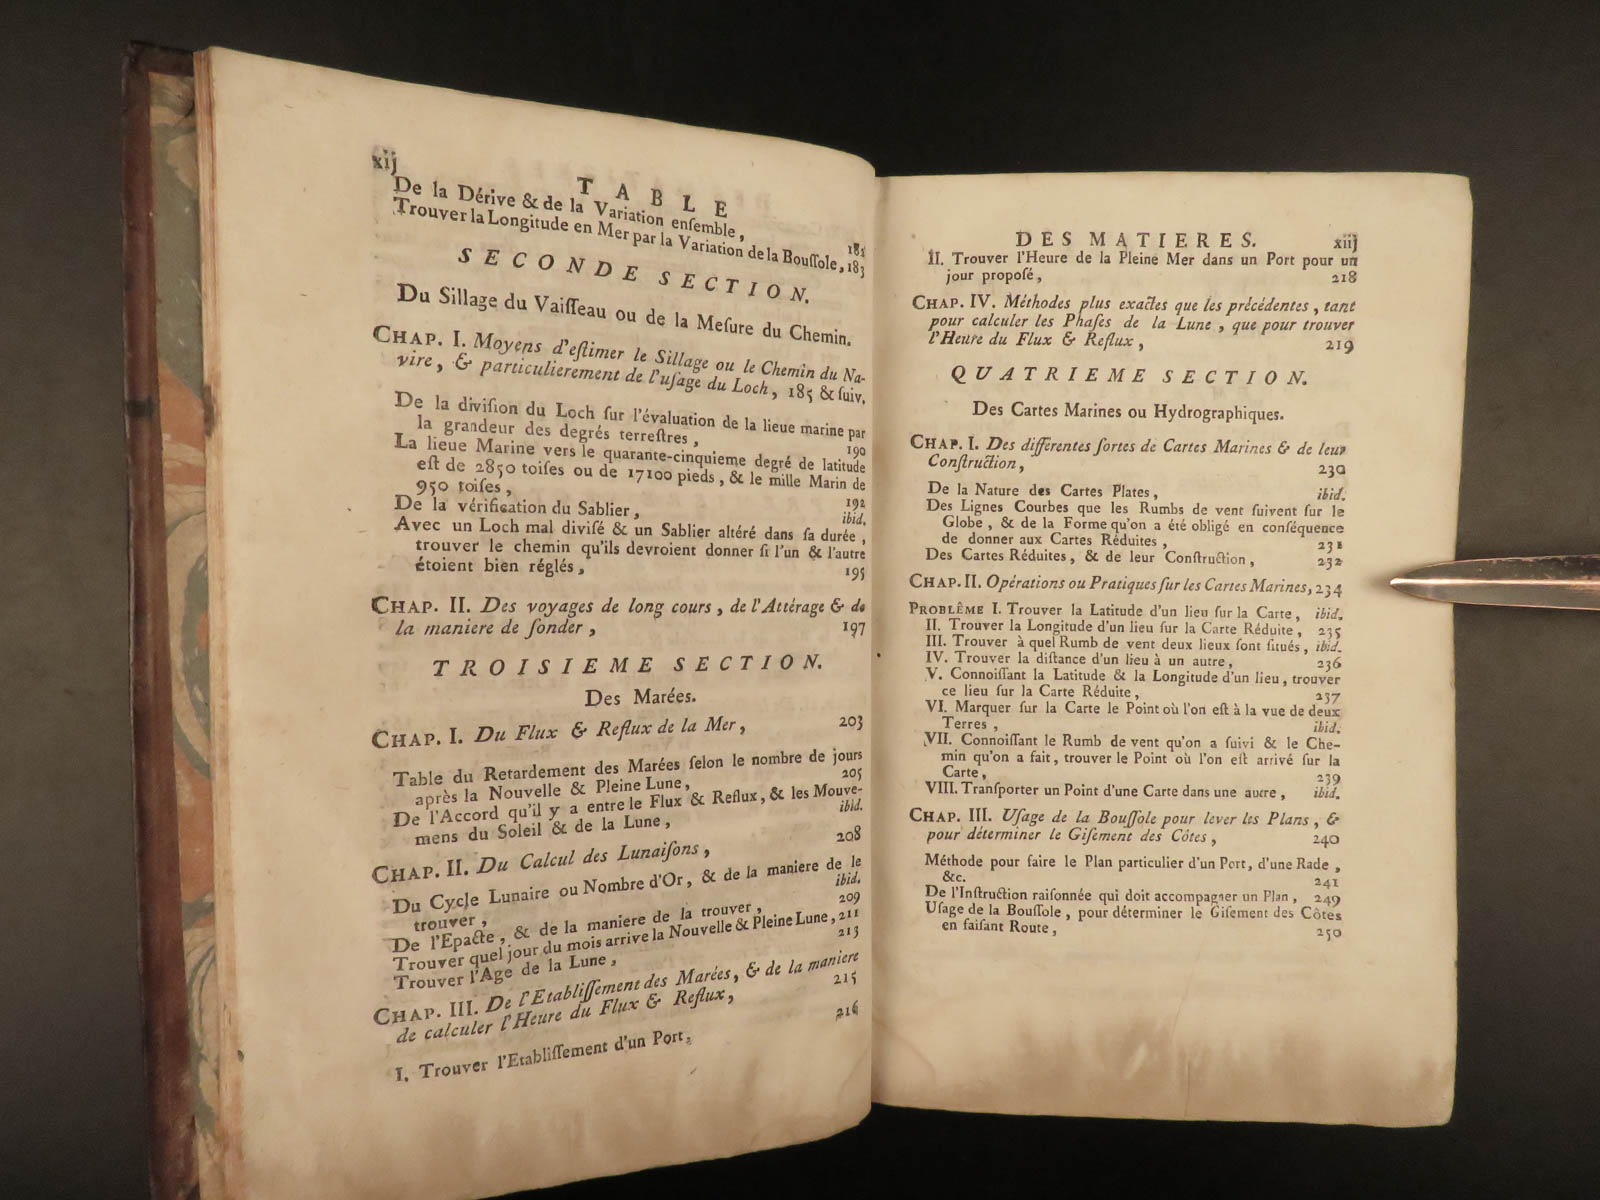 xij
TABLE
De la Dérive & de la Variation enſemble,
181
Trouver la Longitude en Mer par la Variation de la Bouſſole, 183
SECONDE SECTION.
Du Sillage du Vaiſſeau ou de la Meſure du Chemin.
CHAP. I. Moyens d'eſtimer le Sillage ou le Chemin du Na-
vire, & particulierement de l'uſage du Loch, 185 & ſuiv.
De la diviſion du Loch ſur l'évaluation de la lieue marine par
la grandeur des degrés terreſtres, 190
La lieue Marine vers le quarante-cinquieme degré de latitude
eſt de 2850 toiſes ou de 17100 pieds, & le mille Marin de
950 toiſes, 192
De la vérification du Sablier, ibid.
Avec un Loch mal diviſé & un Sablier altéré dans ſa durée,
trouver le chemin qu'ils devroient donner ſi l'un & l'autre
étoient bien réglés, 195
CHAP. II. Des voyages de long cours, de l'Attérage & de
la maniere de ſonder, 197
TROISIEME SECTION.
Des Marées.
CHAP. I. Du Flux & Reflux de la Mer, 203
Table du Retardement des Marées ſelon le nombre de jours
après la Nouvelle & Pleine Lune, 205
De l'Accord qu'il y a entre le Flux & Reflux, & les Mouve-
mens du Soleil & de la Lune, ibid.
CHAP. II. Du Calcul des Lunaiſons, 208
Du Cycle Lunaire ou Nombre d'Or, & de la maniere de le
trouver, ibid.
De l'Epacte, & de la maniere de la trouver, 209
Trouver quel jour du mois arrive la Nouvelle & Pleine Lune, 211
Trouver l'Age de la Lune, 213
CHAP. III. De l'Etabliſſement des Marées, & de la maniere
de calculer l'Heure du Flux & Reflux, 215
I. Trouver l'Etabliſſement d'un Port, 216
DES MATIERES. xiij
II. Trouver l'Heure de la Pleine Mer dans un Port pour un
jour propoſé, 218
CHAP. IV. Méthodes plus exactes que les précédentes, tant
pour calculer les Phaſes de la Lune, que pour trouver
l'Heure du Flux & Reflux, 219
QUATRIEME SECTION.
Des Cartes Marines ou Hydrographiques.
CHAP. I. Des différentes ſortes de Cartes Marines & de leur
Conſtruction, 230
De la Nature des Cartes Plates, ibid.
Des Lignes Courbes que les Rumbs de vent ſuivent ſur le
Globe, & de la Forme qu'on a été obligé en conſéquence
de donner aux Cartes Réduites, 231
Des Cartes Réduites, & de leur Conſtruction, 232
CHAP. II. Opérations ou Pratiques ſur les Cartes Marines, 234
PROBLÊME I. Trouver la Latitude d'un lieu ſur la Carte, ibid.
II. Trouver la Longitude d'un lieu ſur la Carte Réduite, 235
III. Trouver à quel Rumb de vent deux lieux ſont ſitués, ibid.
IV. Trouver la diſtance d'un lieu à un autre, 236
V. Connoiſſant la Latitude & la Longitude d'un lieu, trouver
ce lieu ſur la Carte Réduite, 237
VI. Marquer ſur la Carte le Point où l'on eſt à la vue de deux
Terres, ibid.
VII. Connoiſſant le Rumb de vent qu'on a ſuivi & le Che-
min qu'on a fait, trouver le Point où l'on eſt arrivé ſur la
Carte, 239
VIII. Tranſporter un Point d'une Carte dans une autre, ibid.
CHAP. III. Uſage de la Bouſſole pour lever les Plans, &
pour déterminer le Giſement des Côtes, 240
Méthode pour faire le Plan particulier d'un Port, d'une Rade,
&c. 241
De l'Inſtruction raiſonnée qui doit accompagner un Plan, 249
Uſage de la Bouſſole, pour déterminer le Giſement des Côtes
en faiſant Route, 250